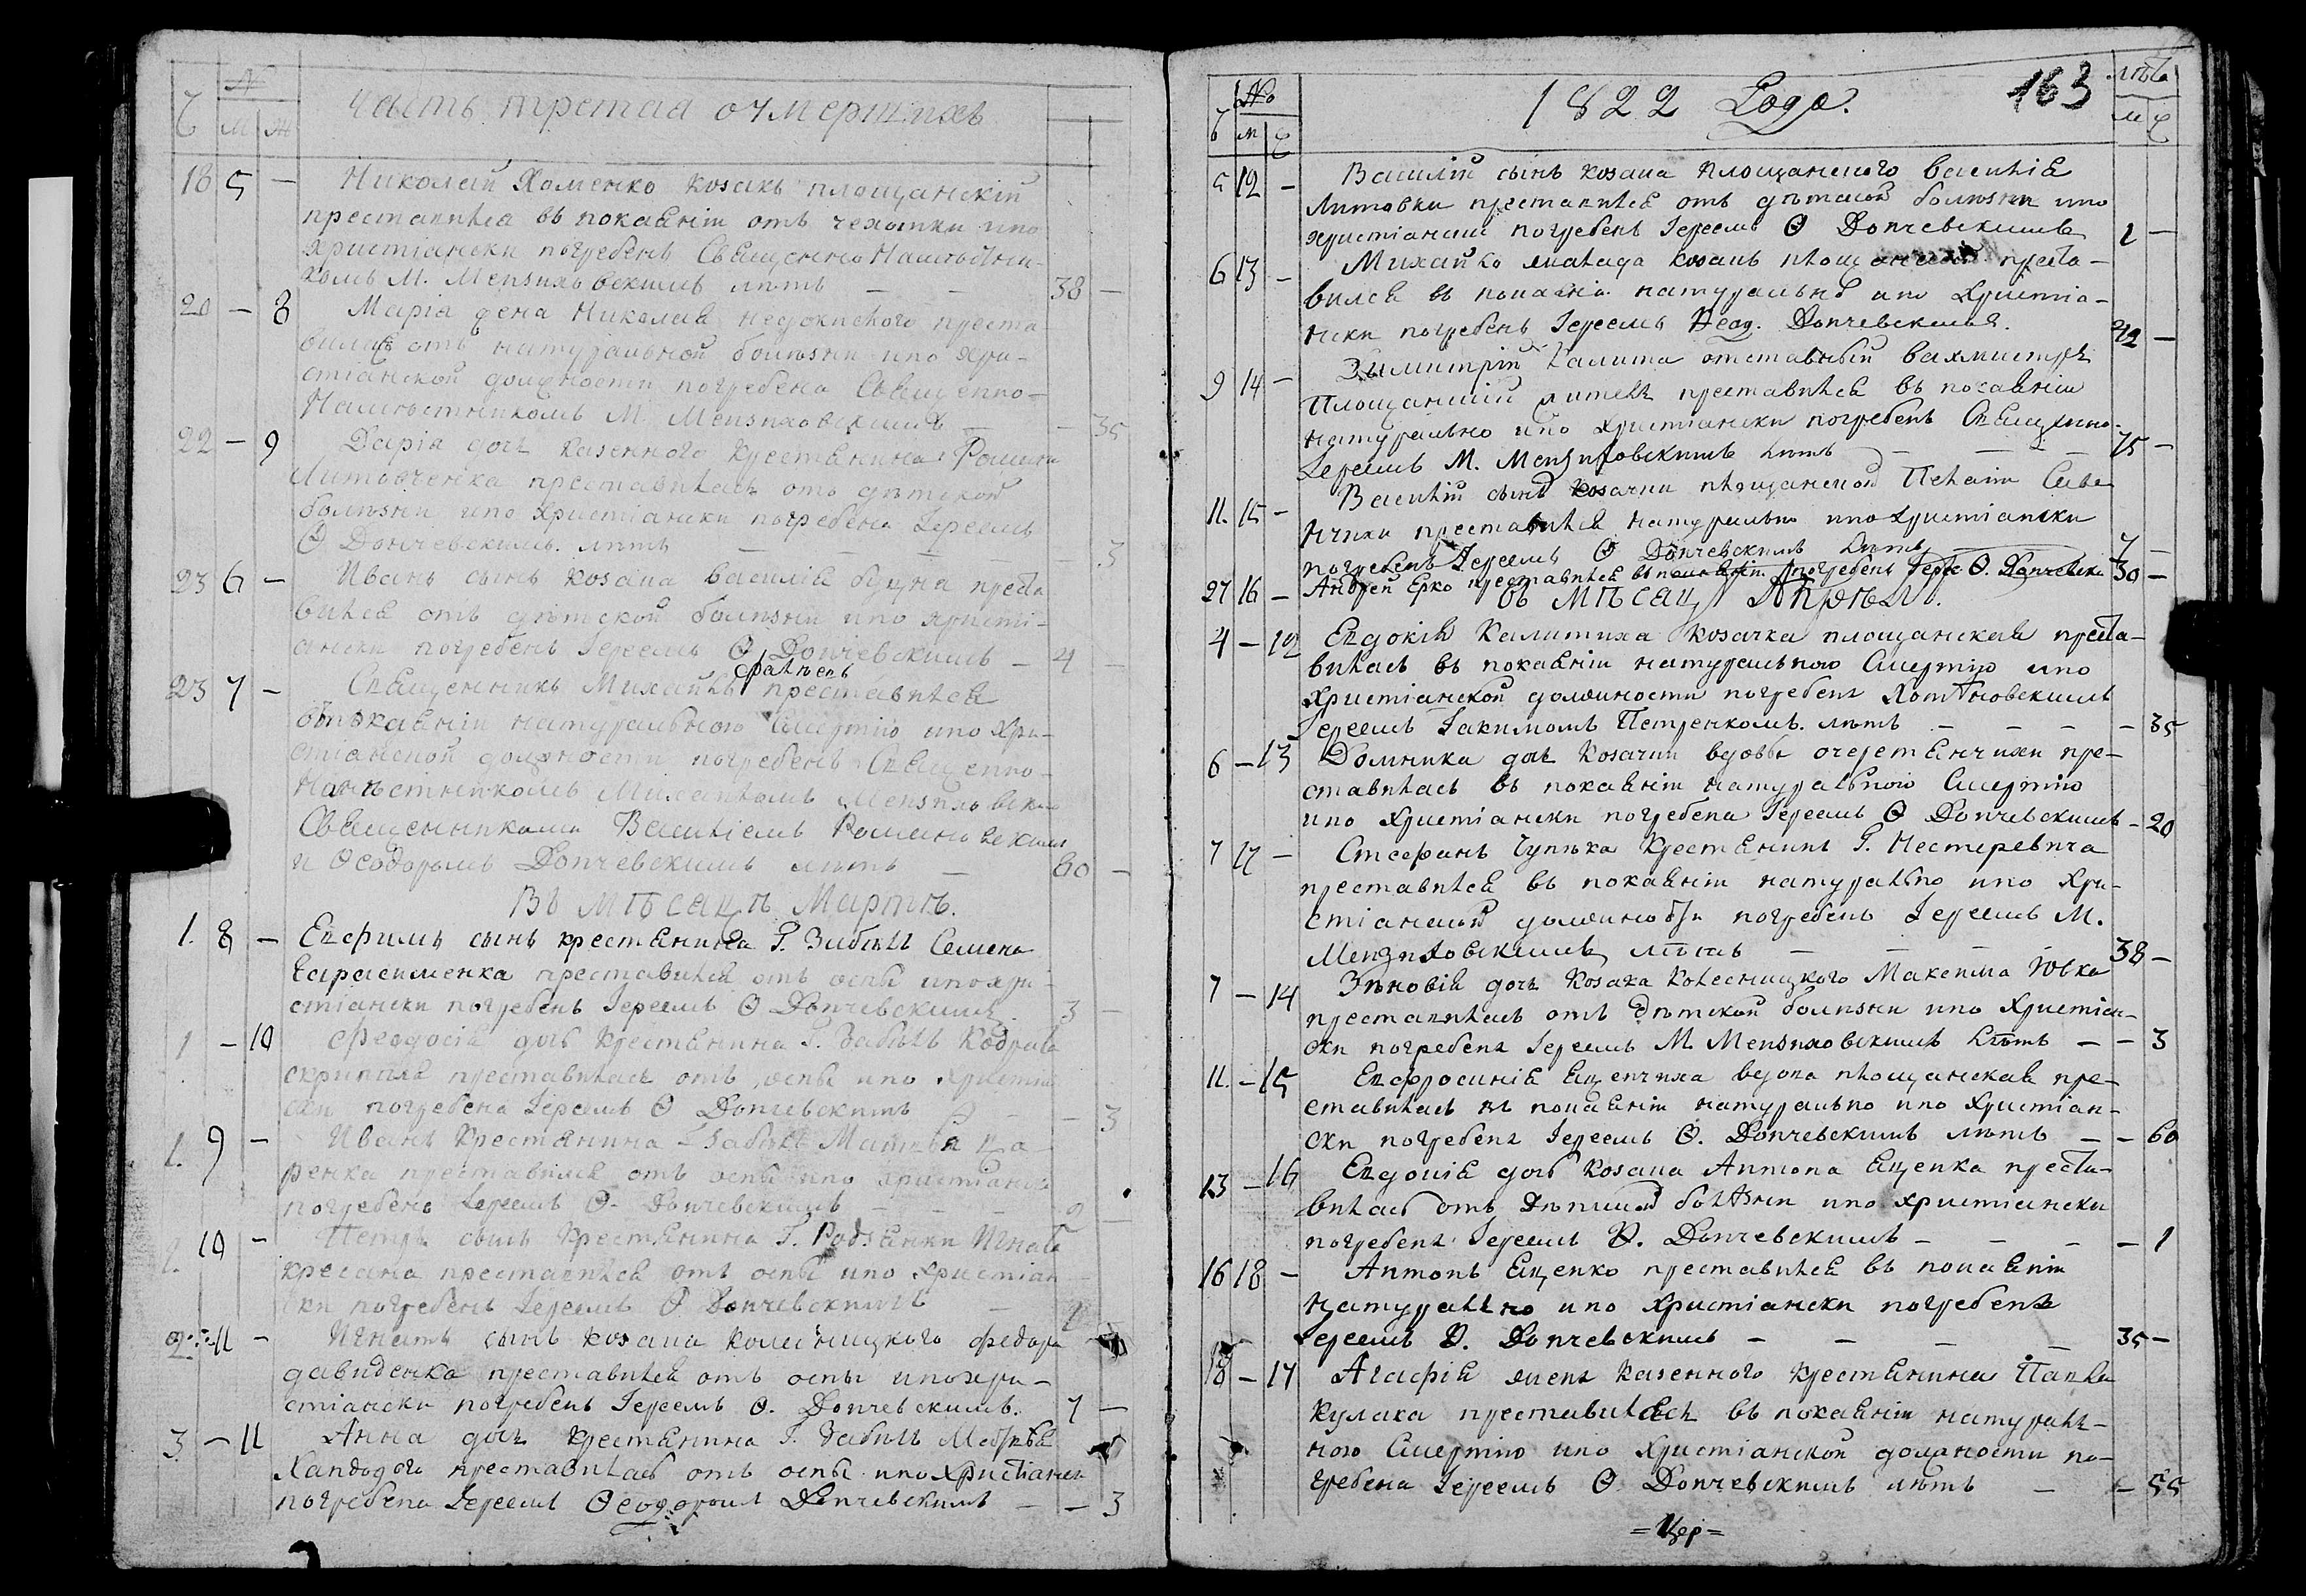 Часть третая о умершихъ
№
Ч М Ж
18 5 — Николай Хоменко козакъ площанскій
преставился въ покаяніи отъ чехотки и по
христіански погребенъ Священно Намѣстни-
комъ М. Мензиховскимъ лѣтъ — — 38 —
20 — 8 Марія жена Николая преста
вилась отъ натуральной болѣзни и по хри-
стіанской должности погребена Священно-
Намѣстникомъ М. Мензиховскимъ — — 35
22 — 9 Дарія дочь казенного крестянина Романа
Литовченка преставилась отъ дѣтской
болѣзни и по христіански погребена Іереемъ
Ѳ Дончевскимъ. лѣтъ — — — — 3
23 6 — Иванъ сынъ козака Василія преста
вился отъ дѣтской болѣзни и по христі-
ански погребенъ Іереемъ Ѳ Дончевскимъ — 4 —
23 7 — Священникъ Михаилъ преставился
въ покаяніи натуральною смертію и по хри-
стіанской должности погребенъ Священно-
Намѣстникомъ Михаиломъ Мензиховским
Священниками Василіемъ Романовскимъ
и Ѳеодоромъ Дончевскимъ лѣтъ — 60 —
Въ мѣсацѣ Мартѣ.
1. 8 — Евфимъ сынъ крестянина Г. Забѣлъ Семена
Гарасименка преставился отъ оспы и по хри-
стіански погребенъ Іереемъ Ѳ Дончевскимъ. 3 —
1 — 10 Феодосія дочь крестянина Г. Забѣлъ
преставилась отъ оспы и по христіан
ски погребена Іереемъ Ѳ Дончевскимъ — — 3
1. 9 — Иванъ крестянина Г Забѣлъ Матвѣя
ренка преставился отъ оспы и по христіански
погребенъ Іереемъ Ѳ. Дончевскимъ — — — 2 —
2. 10 — Петръ сынъ крестянина Г. Родзянки Игната
преставился отъ оспы и по христіан
ски погребенъ Іереемъ Ѳ Дончевскимъ —
2. 11 — Игнатъ сынъ козака колесницкого Федора
Давиденка преставился отъ оспы и по хри-
стіански погребенъ Іереемъ Ѳ. Дончевскимъ. 7 —
3 — 11 Анна дочь крестянина Г. Забѣлъ
преставилась отъ оспы и по христіански
погребена Іереемъ Ѳеодоромъ Дончевскимъ — — 3
1822 Года. 163
№ лѣта
Ч М Ж М Ж
5 12 — Василій сынъ козака площанского Василія
Литовки преставился отъ дѣтской болѣзни и по
христіански погребенъ Іереемъ Ѳ Дончевскимъ 1 —
6 13 — Михайло козакъ площанской преста-
вился въ покаяніи натурально и по христіа-
нски погребенъ Іереемъ Ѳеод. Дончевскимъ. 42 —
9 14 — Димитрій Калита отставный вахмистръ
площанскій житель преставился въ покаяніи
натурально и по христіански погребенъ Священно-
Іереемъ М. Мензиховскимъ лѣтъ — — — 75 —
11. 15 — Василій сынъ козачки площанской Пелагіи
нчихи преставился натурально и по христіански
погребенъ Іереемъ Ѳ Дончевскимъ лѣтъ 7 —
27 16 — Андрей Ерко преставился въ покаяніи погребенъ Іере Ѳ. Дончевски 30 —
въ Мѣсацѣ Апрѣлѣ.
4 — 12 Евдокія Калитиха козачка площанская преста-
вилась въ покаяніи натуральною смертію и по
христіанской должности погребена
Іереемъ Іакимомъ Петренкомъ. лѣтъ — — — — 35
6 — 13 Домника дочь козачки вдовы Очеретянчихи пре-
ставилась въ покаяніи натуральною смертію
и по христіански погребена Іереемъ Ѳ Дончевскимъ — 20
7 17 — Стефанъ Чупѣха крестянинъ Г. Нестеревича
преставился въ покаяніи натурально и по хри-
стіанской должности погребенъ Іереемъ М.
Мензиховскимъ лѣтъ — — — — 38 —
7 — 14 Зѣновія дочь козака колесницкого Максима Ювка
преставилась отъ дѣтской болѣзни и по христіан-
ски погребена Іереемъ М. Мензиховскимъ лѣтъ — — 3
11. — 15 Евфросинія Яценчиха вдова площанская пре-
ставилась въ покаяніи натурально и по христіан-
ски погребена Іереемъ Ѳ. Дончевскимъ лѣтъ — — 60
13 — 16 Евдокія дочь козака Антона Яценка преста-
вилась отъ дѣтской болѣзни и по христіански
погребена Іереемъ Ѳ. Дончевскимъ — — — — 1
16 18 — Антонъ Яценко преставился въ покаяніи
натурално и по христіански погребенъ
Іереемъ Ѳ. Дончевскимъ — — — — 35 —
18 — 17 Агафія жена казенного крестянина Павла
Кулака преставилась въ покаяніи натурал-
ною смертію и по христіанской должности по-
гребена Іереемъ Ѳ Дончевскимъ лѣтъ — — 55
= Цер =